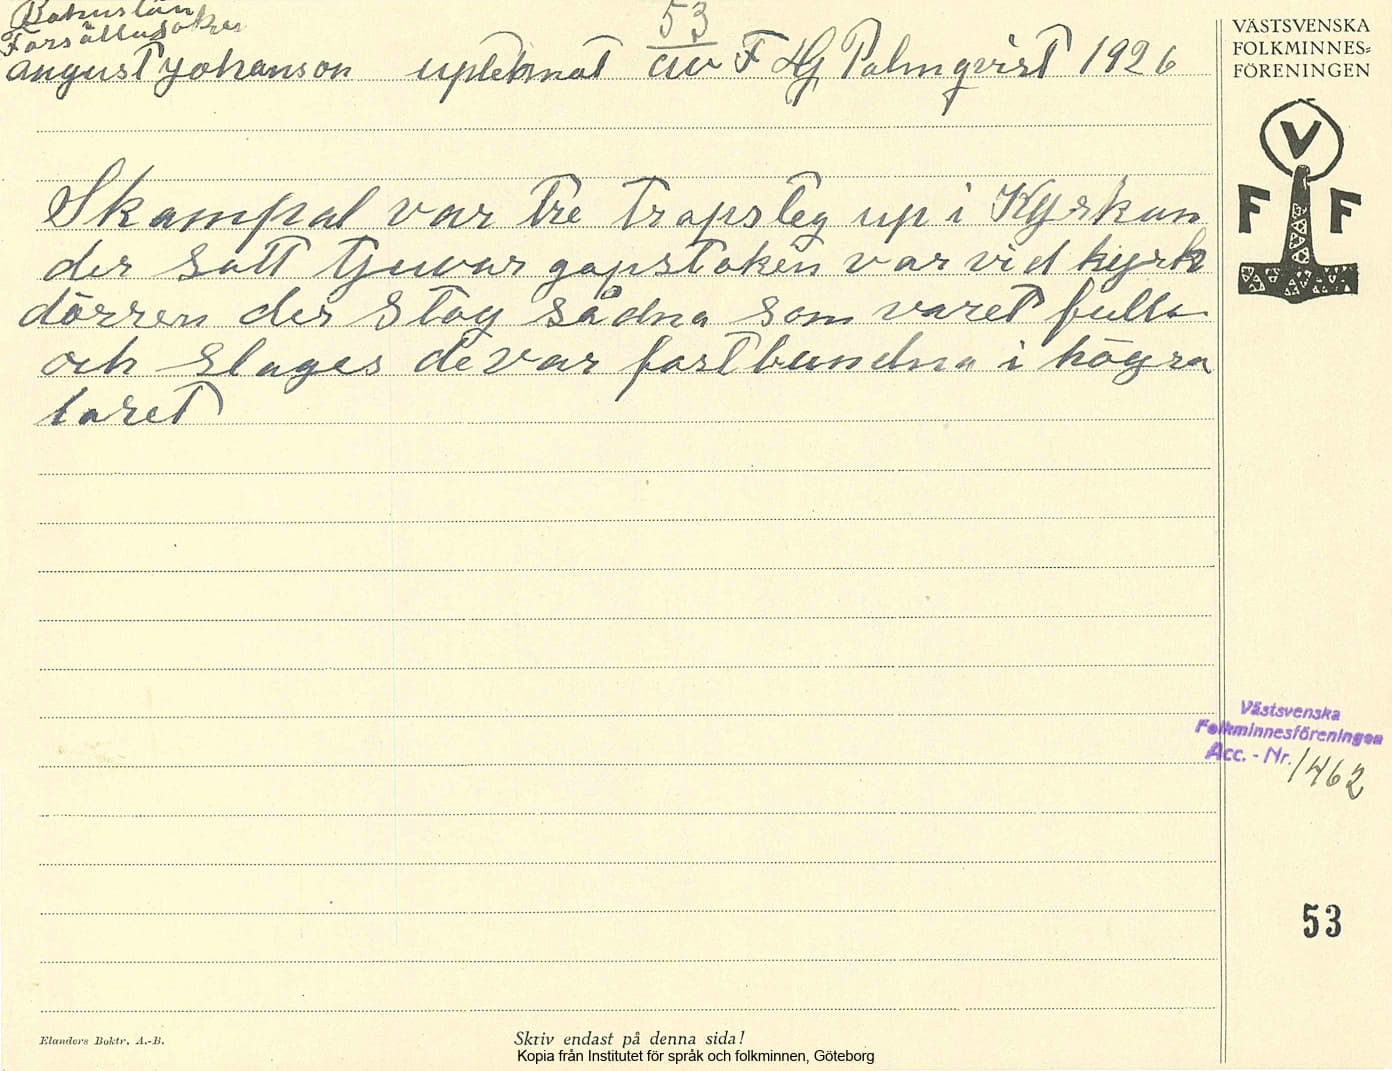 Bohuslän
53
Forsälla soken
August Johanson upteknat av F Hj Palmqvist 1926
Skampal var tre trapsteg up i Kyrkan
der satt tjuvar gapstoken var vid kyrk
dörren der stog sådna som varet fulla
och slages de var fastbundna i högra
laret
VÄSTSVENSKA
FOLKMINNES-
FÖRENINGEN
V
F F
Västsvenska
Folkminnesföreningen
Acc. - Nr. 1462
53
Elanders Boktr. A.-B.
Skriv endast på denna sida!
Kopia från Institutet för språk och folkminnen, Göteborg